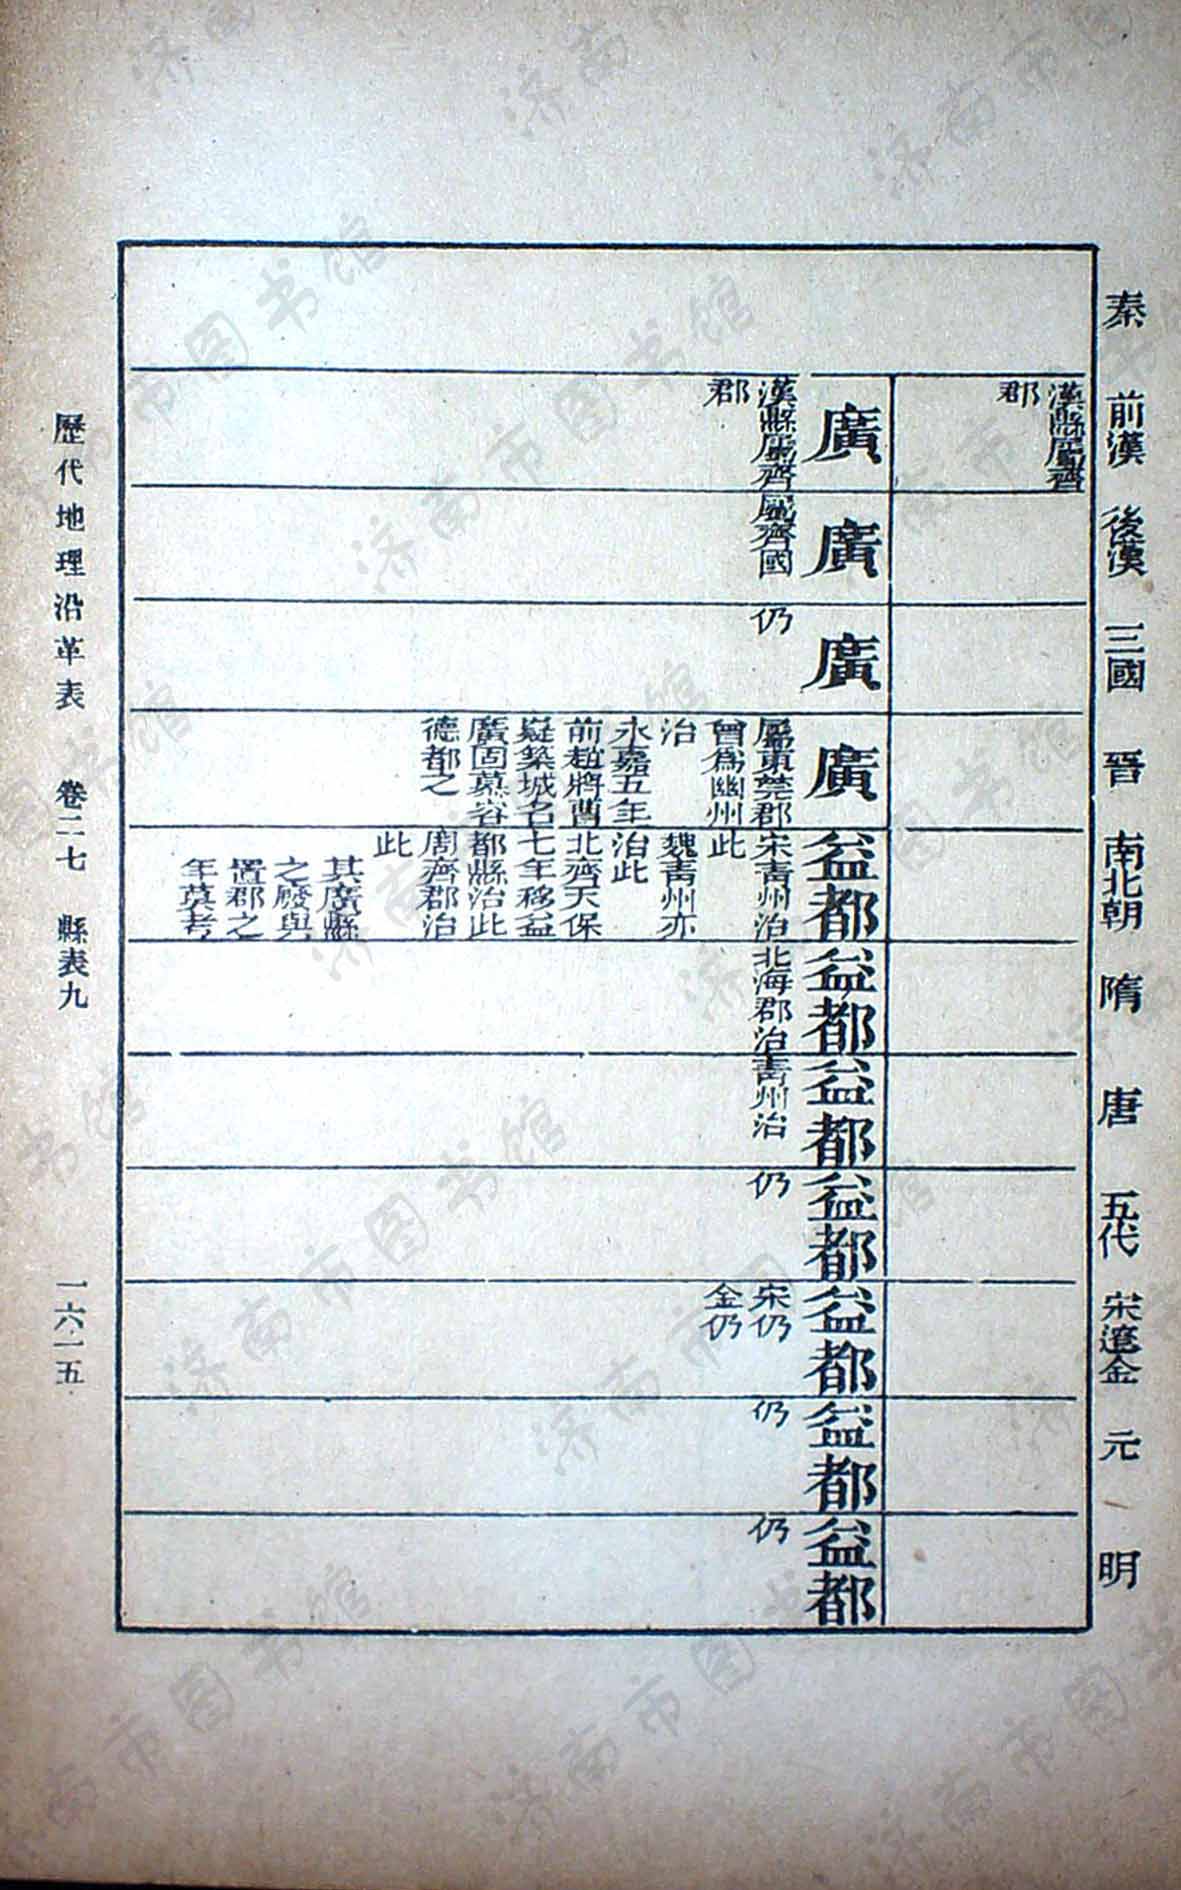 秦 前漢 後漢 三國 晉 南北朝 隋 唐 五代 宋遼金 元 明
漢縣屬齊
郡
廣
漢縣屬齊
郡
廣
屬齊國
廣
仍
廣
屬東莞郡
曾爲幽州
治
永嘉五年
前趙將曹
嶷築城名
廣固慕容
德都之
益都
宋青州治
此
魏青州亦
治此
北齊天保
七年移益
都縣治此
周齊郡治
此
其廣縣
之廢與
置郡之
年莫考
益都
北海郡治
益都
青州治
益都
仍
益都
宋仍
金仍
益都
仍
益都
仍
歷代地理沿革表 卷二七 縣表九 一六一五
济南市图书馆